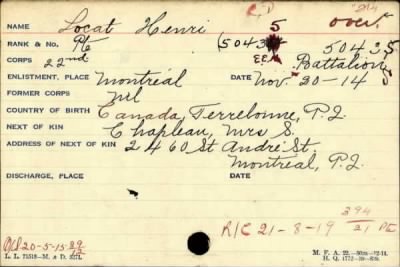 C.D. 214
NAME Locat Henri 5 over.
RANK & NO. Pte (5043 50435
E.E.M.
CORPS 22nd Battalion
ENLISTMENT, PLACE Montreal DATE Nov. 20-14
FORMER CORPS nil
COUNTRY OF BIRTH Canada, Terrebonne, P.Q.
NEXT OF KIN Chapleau, Mrs S.
ADDRESS OF NEXT OF KIN 2460 St André St.
Montreal, P.Q.
DISCHARGE, PLACE DATE
R/C 21-8-19 394
21 PE
O/S 20-5-15 29
12
L. L. 75518—M. & D. 8271.
M. F. A. 22.
H. Q. 1772-39-